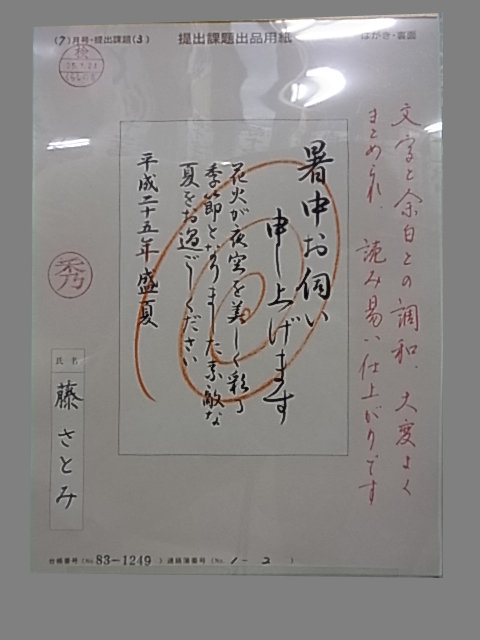 (7)月号・提出課題(3)
提出課題出品用紙
はがき・裏面
検
文字と余白との調和、大変よく
まとめられ、読み易い仕上がりです
暑中お伺い
申し上げます
花火が夜空を美しく彩る
季節となりました素敵な
夏をお過ごしください
平成二十五年 盛夏
秀
氏名
藤さとみ
台帳番号(No.83-1249)連絡簿番号(No.1-2)